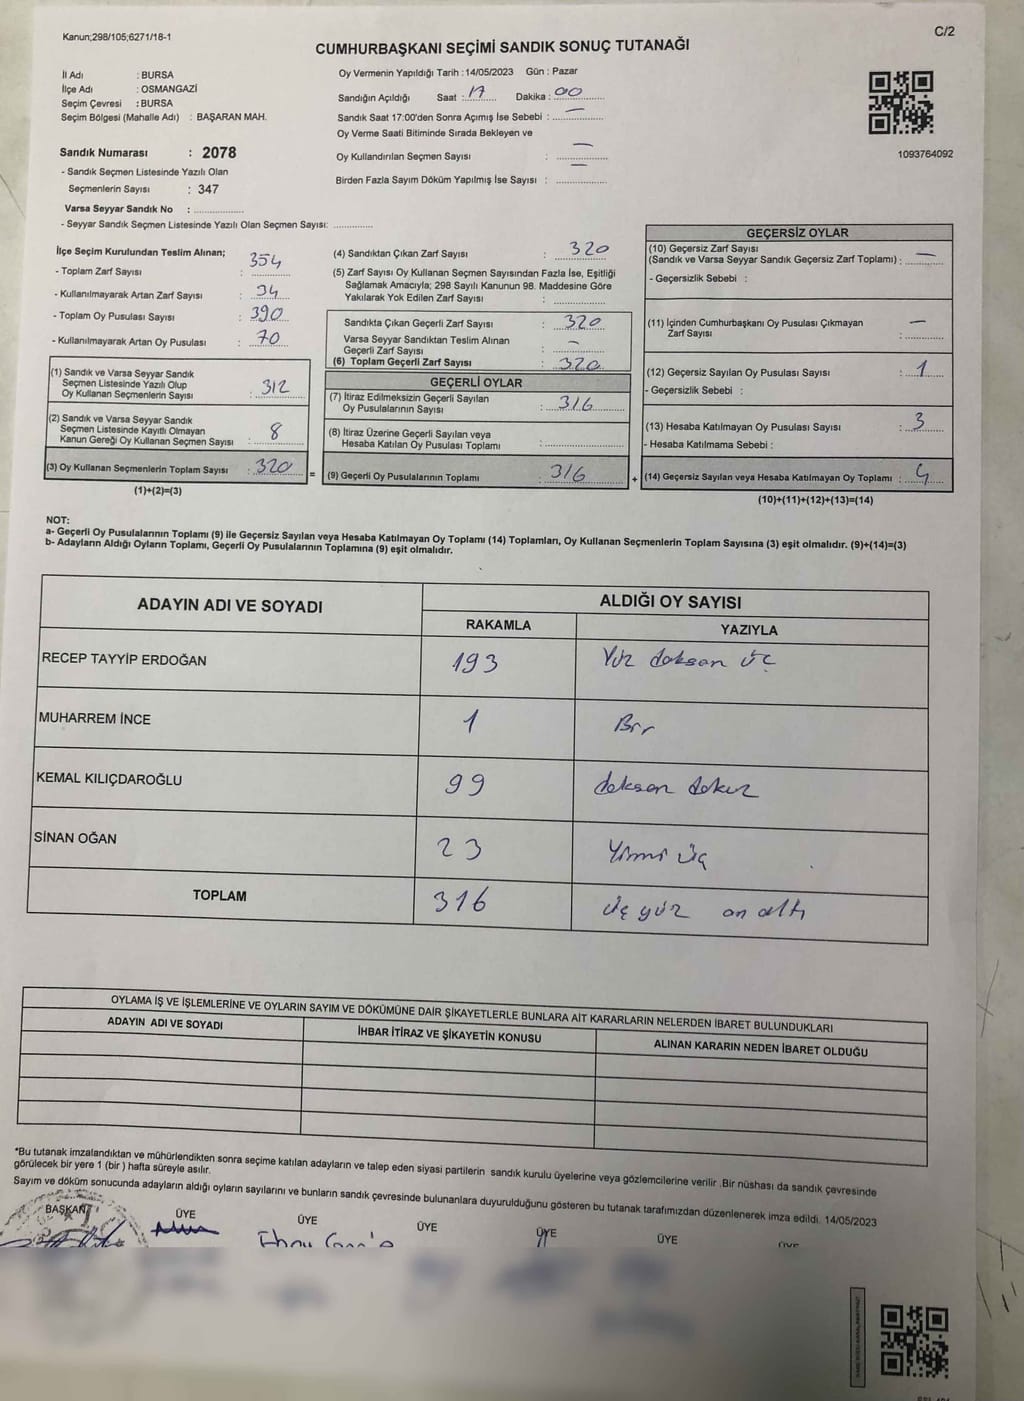 Kanun;298/105;6271/18-1
C/2
CUMHURBAŞKANI SEÇİMİ SANDIK SONUÇ TUTANAĞI
İl Adı : BURSA
İlçe Adı : OSMANGAZİ
Seçim Çevresi : BURSA
Seçim Bölgesi (Mahalle Adı) : BAŞARAN MAH.
Sandık Numarası : 2078
- Sandık Seçmen Listesinde Yazılı Olan
Seçmenlerin Sayısı : 347
Varsa Seyyar Sandık No : ..................
- Seyyar Sandık Seçmen Listesinde Yazılı Olan Seçmen Sayısı: .............
Oy Vermenin Yapıldığı Tarih : 14/05/2023 Gün : Pazar
Sandığın Açıldığı Saat : 17 Dakika : 00
Sandık Saat 17:00'den Sonra Açımış İse Sebebi : —
Oy Verme Saati Bitiminde Sırada Bekleyen ve
Oy Kullandırılan Seçmen Sayısı : —
Birden Fazla Sayım Döküm Yapılmış İse Sayısı : —
1093764092
İlçe Seçim Kurulundan Teslim Alınan;
- Toplam Zarf Sayısı : 354
- Kullanılmayarak Artan Zarf Sayısı : 34
- Toplam Oy Pusulası Sayısı : 390
- Kullanılmayarak Artan Oy Pusulası : 70
(1) Sandık ve Varsa Seyyar Sandık
Seçmen Listesinde Yazılı Olup
Oy Kullanan Seçmenlerin Sayısı : 312
(2) Sandık ve Varsa Seyyar Sandık
Seçmen Listesinde Kayıtlı Olmayan
Kanun Gereği Oy Kullanan Seçmen Sayısı : 8
(3) Oy Kullanan Seçmenlerin Toplam Sayısı : 320 =
(1)+(2)=(3)
(4) Sandıktan Çıkan Zarf Sayısı : 320
(5) Zarf Sayısı Oy Kullanan Seçmen Sayısından Fazla İse, Eşitliği
Sağlamak Amacıyla; 298 Sayılı Kanunun 98. Maddesine Göre
Yakılarak Yok Edilen Zarf Sayısı : .............
Sandıkta Çıkan Geçerli Zarf Sayısı : 320
Varsa Seyyar Sandıktan Teslim Alınan
Geçerli Zarf Sayısı : —
(6) Toplam Geçerli Zarf Sayısı : 320
GEÇERLİ OYLAR
(7) İtiraz Edilmeksizin Geçerli Sayılan
Oy Pusulalarının Sayısı : 316
(8) İtiraz Üzerine Geçerli Sayılan veya
Hesaba Katılan Oy Pusulası Toplamı : .............
(9) Geçerli Oy Pusulalarının Toplamı : 316 +
GEÇERSİZ OYLAR
(10) Geçersiz Zarf Sayısı
(Sandık ve Varsa Seyyar Sandık Geçersiz Zarf Toplamı) : —
- Geçersizlik Sebebi :
(11) İçinden Cumhurbaşkanı Oy Pusulası Çıkmayan
Zarf Sayısı : —
(12) Geçersiz Sayılan Oy Pusulası Sayısı : 1
- Geçersizlik Sebebi :
(13) Hesaba Katılmayan Oy Pusulası Sayısı : 3
- Hesaba Katılmama Sebebi :
(14) Geçersiz Sayılan veya Hesaba Katılmayan Oy Toplamı : 4
(10)+(11)+(12)+(13)=(14)
NOT:
a- Geçerli Oy Pusulalarının Toplamı (9) ile Geçersiz Sayılan veya Hesaba Katılmayan Oy Toplamı (14) Toplamları, Oy Kullanan Seçmenlerin Toplam Sayısına (3) eşit olmalıdır. (9)+(14)=(3)
b- Adayların Aldığı Oyların Toplamı, Geçerli Oy Pusulalarının Toplamına (9) eşit olmalıdır.
ADAYIN ADI VE SOYADI
ALDIĞI OY SAYISI
RAKAMLA YAZIYLA
RECEP TAYYİP ERDOĞAN 193 Yüz doksan üç
MUHARREM İNCE 1 Bir
KEMAL KILIÇDAROĞLU 99 doksan dokuz
SİNAN OĞAN 23 Yirmi üç
TOPLAM 316 üç yüz on altı
OYLAMA İŞ VE İŞLEMLERİNE VE OYLARIN SAYIM VE DÖKÜMÜNE DAİR ŞİKAYETLERLE BUNLARA AİT KARARLARIN NELERDEN İBARET BULUNDUKLARI
ADAYIN ADI VE SOYADI İHBAR İTİRAZ VE ŞİKAYETİN KONUSU ALINAN KARARIN NEDEN İBARET OLDUĞU
*Bu tutanak imzalandıktan ve mühürlendikten sonra seçime katılan adayların ve talep eden siyasi partilerin sandık kurulu üyelerine veya gözlemcilerine verilir .Bir nüshası da sandık çevresinde
görülecek bir yere 1 (bir ) hafta süreyle asılır.
Sayım ve döküm sonucunda adayların aldığı oyların sayılarını ve bunların sandık çevresinde bulunanlara duyurulduğunu gösteren bu tutanak tarafımızdan düzenlenerek imza edildi. 14/05/2023
BAŞKAN ÜYE ÜYE ÜYE ÜYE ÜYE ÜYE